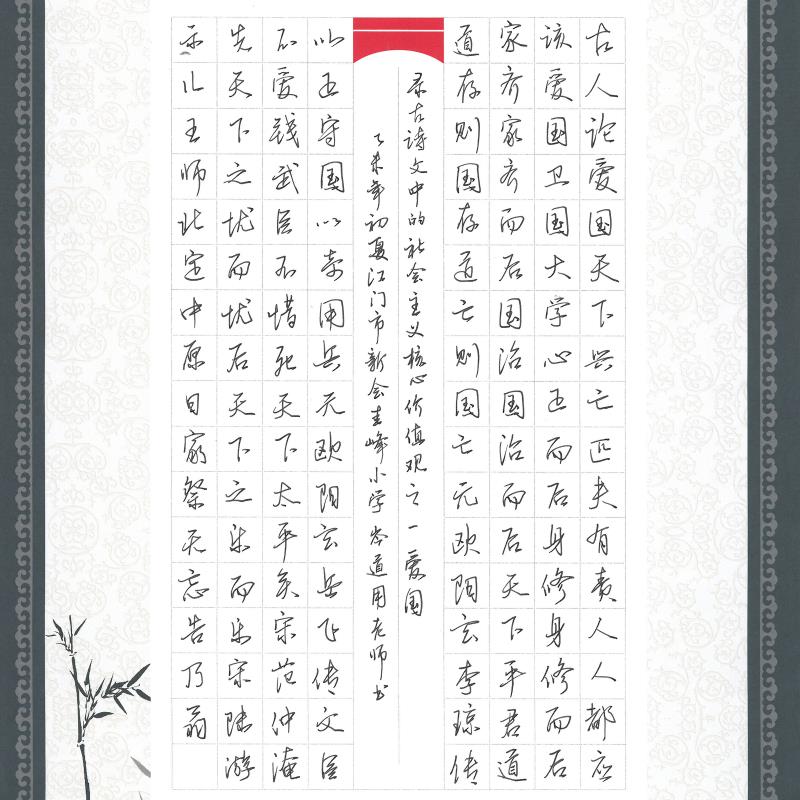 古人论爱国天下兴亡匹夫有责人人都应
该爱国卫国大学心正而后身修身修而后
家齐家齐而后国治国治而后天下平君道
道存则国存道亡则国亡元欧阳玄李琼传
录古诗文中的社会主义核心价值观之一爱国
乙未年初夏江门市新会圭峰小学岑道用老师书
以正守国以奇用兵元欧阳玄岳飞传文臣
不爱钱武臣不惜死天下太平矣宋范仲淹
先天下之忧而忧后天下之乐而乐宋陆游
示儿王师北定中原日家祭无忘告乃翁